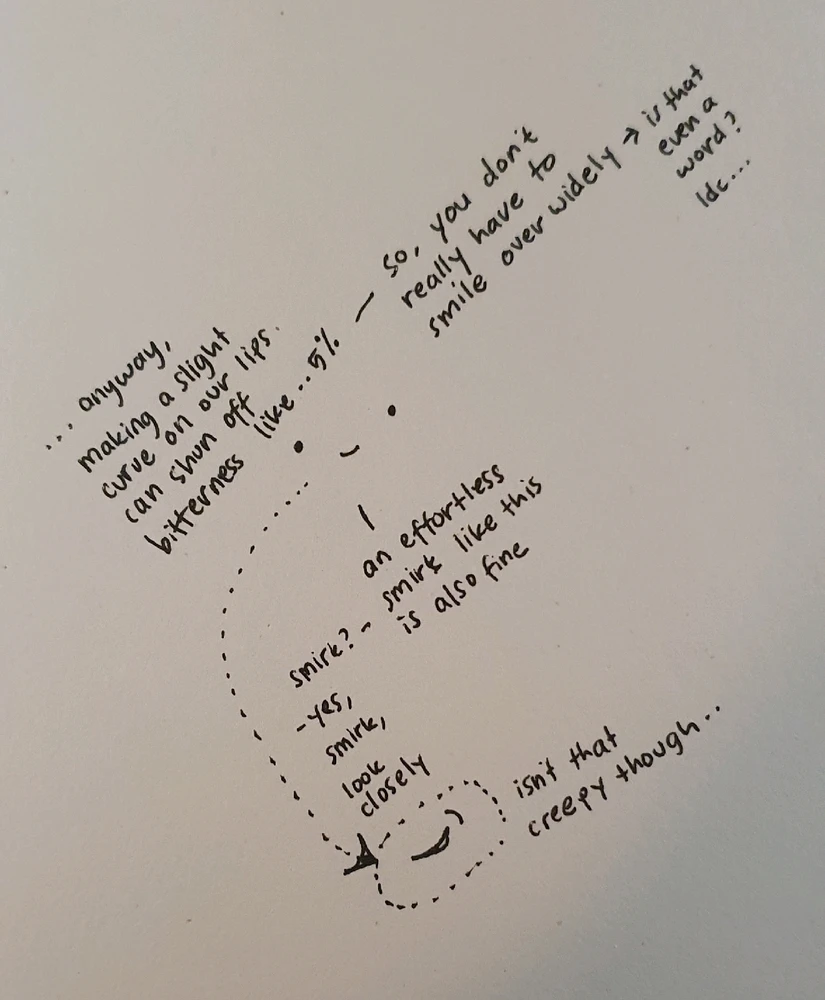 ... anyway,
making a slight
curve on our lips.
can shun off
bitterness like...5% —
so, you don't
really have to
smile over widely → is that
even a
word?
Idc...
an effortless
smirk like this
is also fine
smirk? -
- yes,
smirk,
look
closely
isn't that
creepy though..